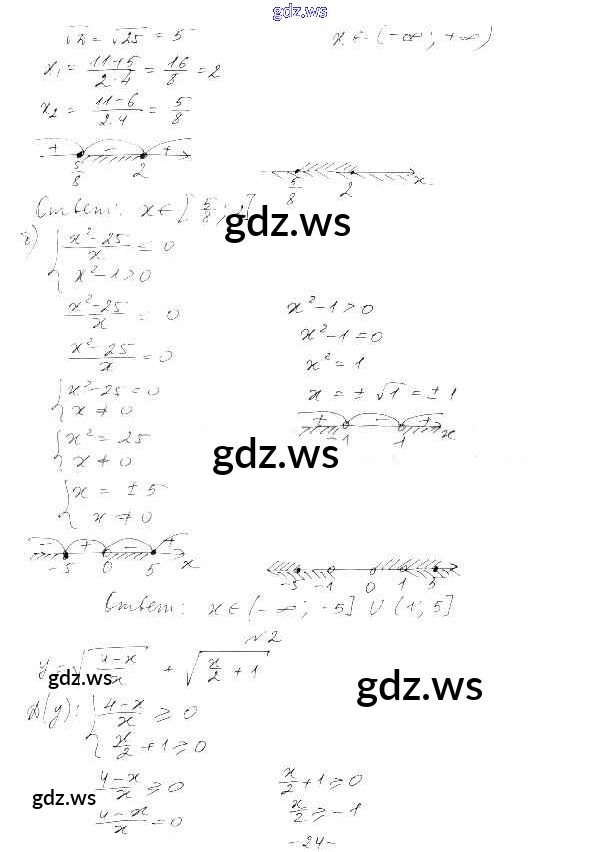 gdz.ws
√D = √25 = 5
x ∈ (-∞; +∞)
x₁ = (11+5)/(2·4) = 16/8 = 2
x₂ = (11-6)/(2·4) = 5/8
+ - +
5/8 2
5/8 2 x
Ответ: x ∈ [5/8; 2]
gdz.ws
{ (x²-25)/x ≤ 0
x²-1 > 0
(x²-25)/x ≤ 0
(x²-25)/x = 0
{ x²-25 = 0
x ≠ 0
{ x² = 25
x ≠ 0
{ x = ±5
x ≠ 0
x²-1 > 0
x²-1 = 0
x² = 1
x = ±√1 = ±1
+ - +
-1 1 x
gdz.ws
- + - +
-5 0 5 x
-5 -1 0 1 5
Ответ: x ∈ (-∞; -5] ∪ (1; 5]
№2
y = √((4-x)/x) + √(x/2 + 1)
gdz.ws
gdz.ws
D(y): { (4-x)/x ≥ 0
x/2 + 1 ≥ 0
(4-x)/x ≥ 0
(4-x)/x = 0
gdz.ws
x/2 + 1 ≥ 0
x/2 ≥ -1
-24-